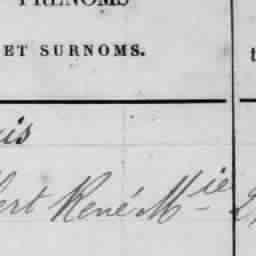 PRÉNOMS
ET SURNOMS.
t
is
ert René Mie